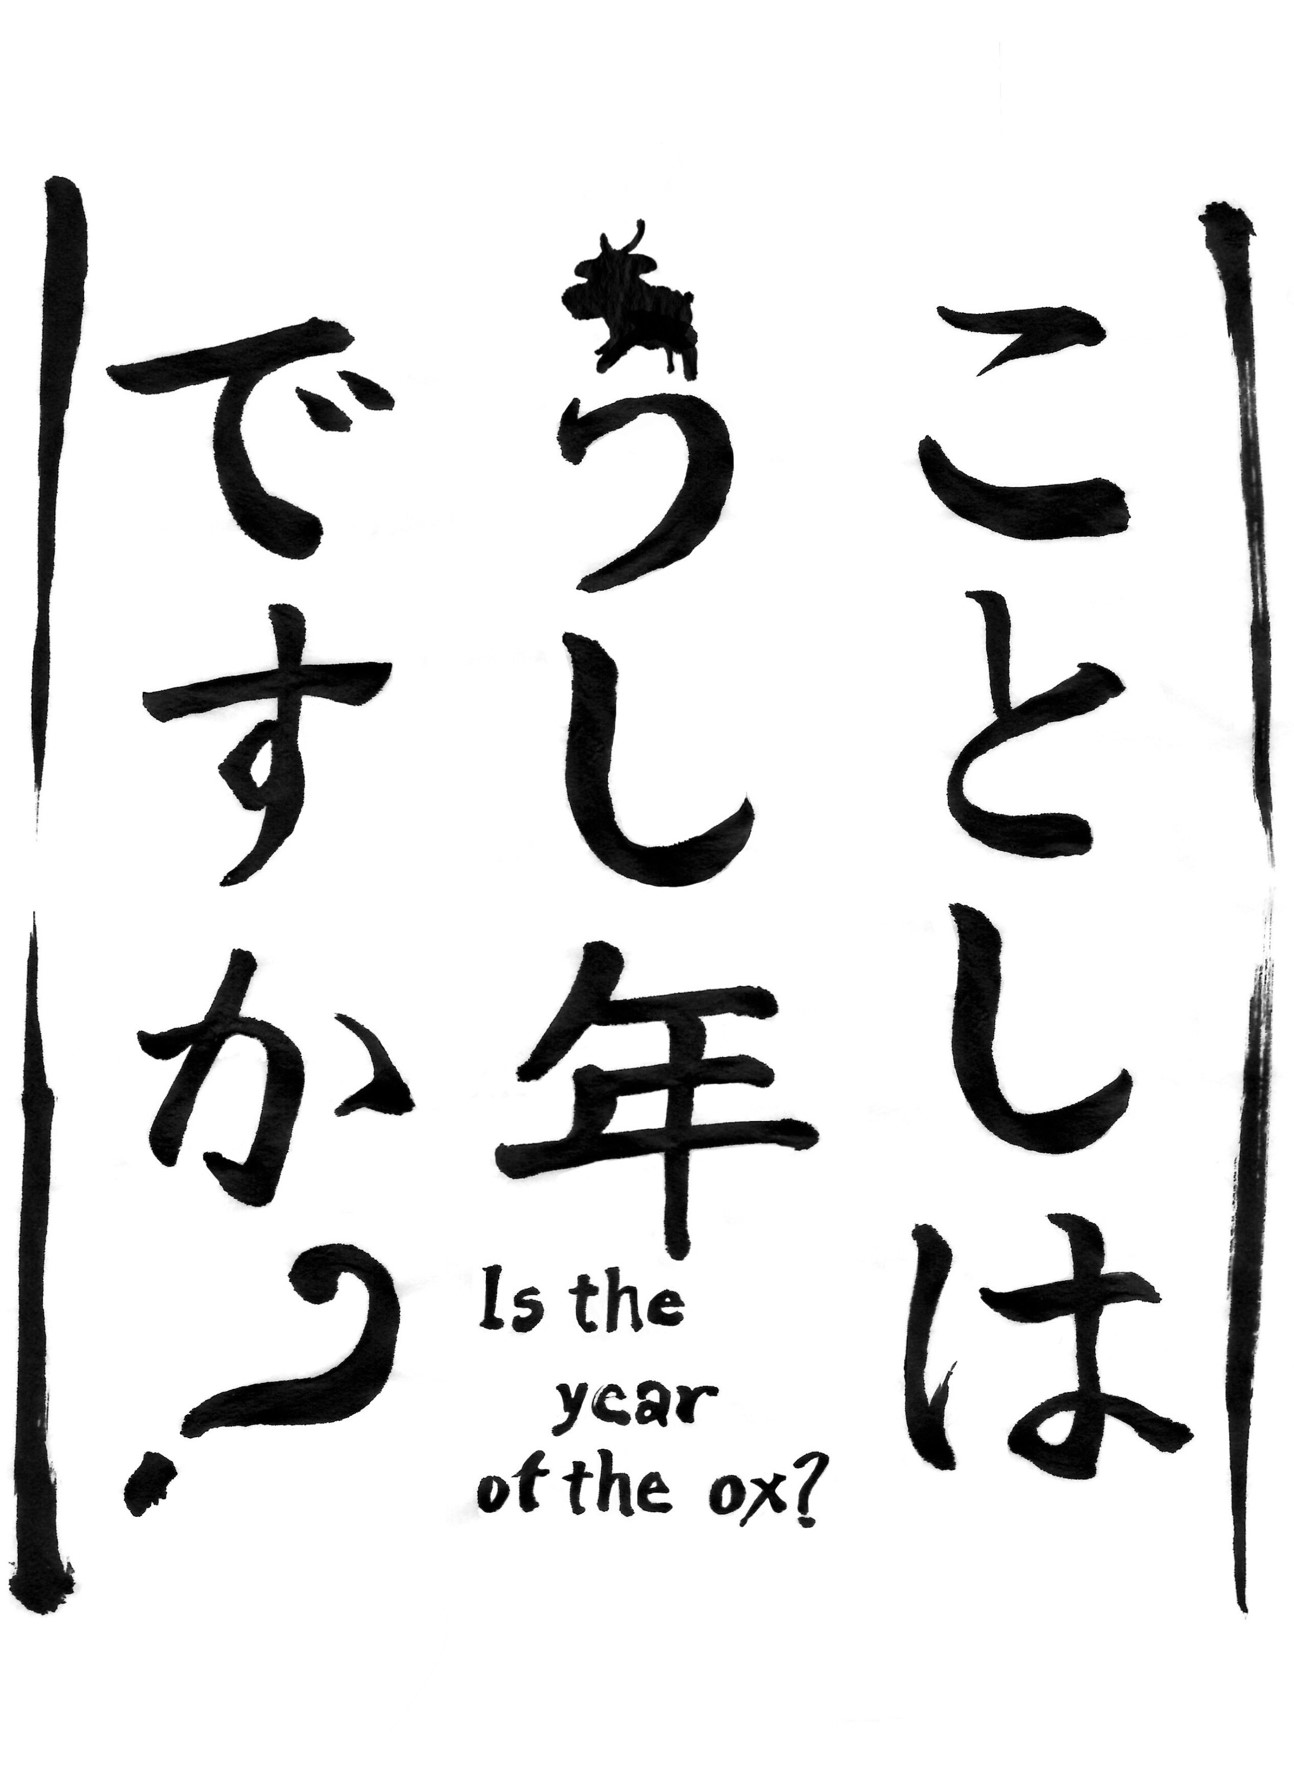 ことしは
うし年
ですか?
Is the
year
of the ox?